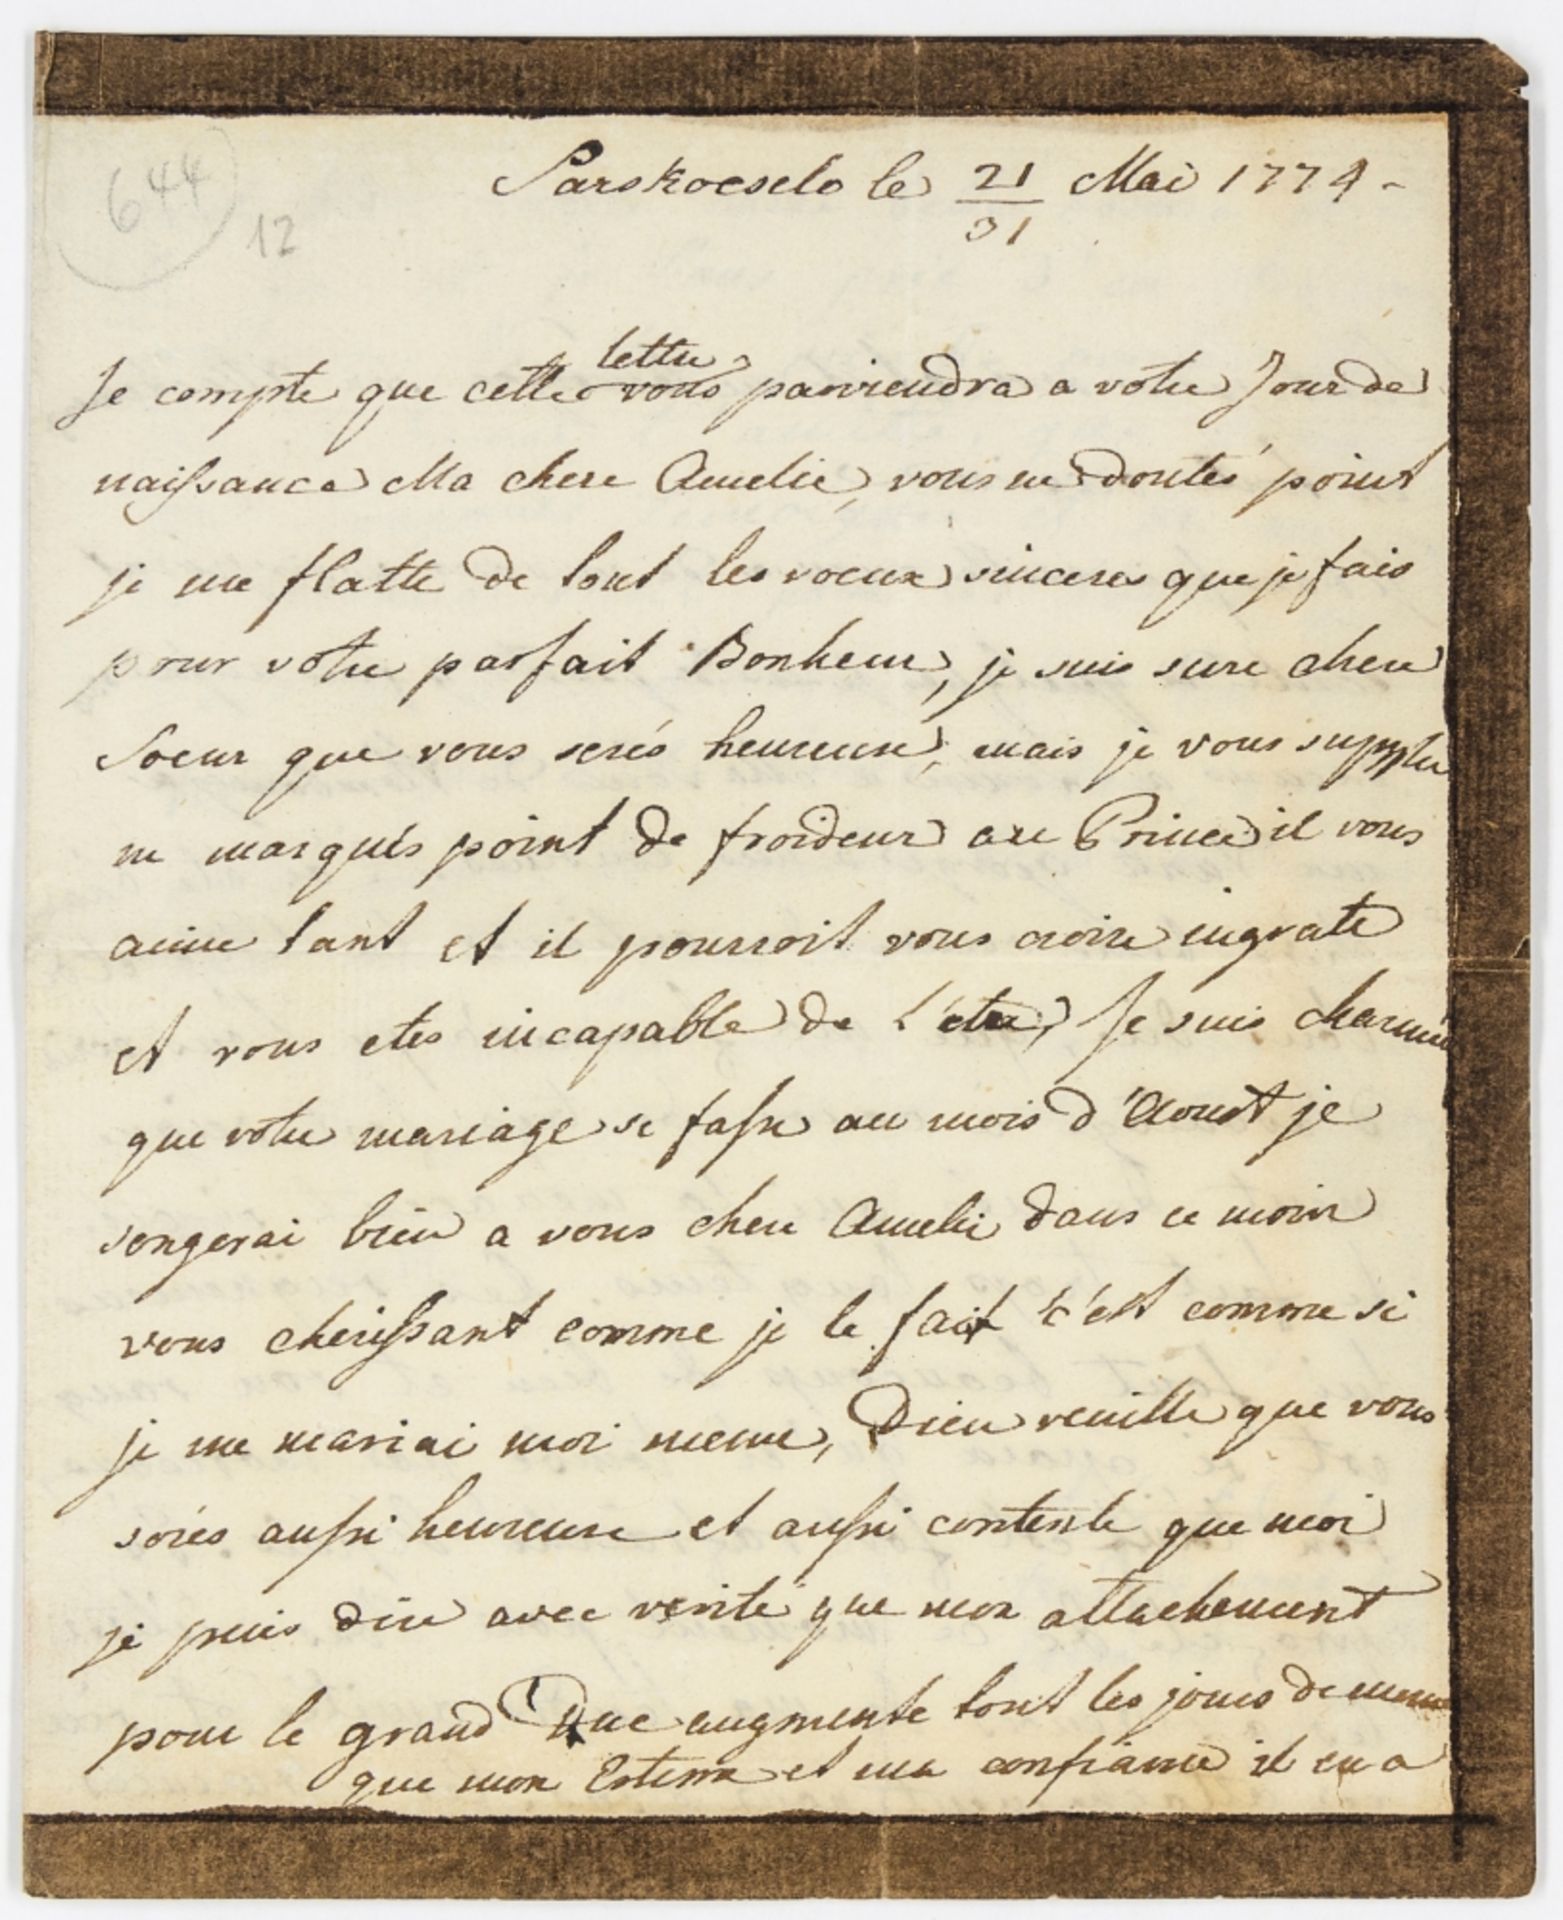 644
12
Sarskoeselo le 21/31 Mai 1774 -
lettre
Je compte que cette vous parviendra a votre Jour de
naissance Ma chere Amelie, vous ne doutés point
je me flatte de tout les voeux sinceres que je fais
pour votre parfait Bonheur, je suis sure chere
Soeur que vous serés heureuse, mais je vous supplie
ne marqués point de froideur au Prince il vous
aime tant et il pourroit vous croire ingrate
et vous etes incapable de l'etre, Je suis charmée
que votre mariage se fasse au mois d'Aoust je
songerai bien a vous chere Amelie dans ce moin
vous cherissant comme je le fait c'est comme si
je me mariai moi meme, Dieu veuille que vous
soiés aussi heureuse et aussi contente que moi
je puis dire avec verité que mon attachement
pour le grand Duc augmente tout les jours de meme
que mon Estime et ma confiance il en a